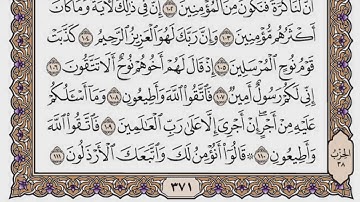 أَنَّ لَنَا كَرَّةً فَنَكُونَ مِنَ ٱلْمُؤْمِنِينَ ١٠٢ إِنَّ فِى ذَٰلِكَ لَءَايَةً وَمَا كَانَ
أَكْثَرُهُم مُّؤْمِنِينَ ١٠٣ وَإِنَّ رَبَّكَ لَهُوَ ٱلْعَزِيزُ ٱلرَّحِيمُ ١٠٤ كَذَّبَتْ
قَوْمُ نُوحٍ ٱلْمُرْسَلِينَ ١٠٥ إِذْ قَالَ لَهُمْ أَخُوهُمْ نُوحٌ أَلَا تَتَّقُونَ ١٠٦
إِنِّى لَكُمْ رَسُولٌ أَمِينٌ ١٠٧ فَٱتَّقُوا۟ ٱللَّهَ وَأَطِيعُونِ ١٠٨ وَمَآ أَسْـَٔلُكُمْ
عَلَيْهِ مِنْ أَجْرٍ إِنْ أَجْرِىَ إِلَّا عَلَىٰ رَبِّ ٱلْعَٰلَمِينَ ١٠٩ فَٱتَّقُوا۟ ٱللَّهَ
وَأَطِيعُونِ ١١٠ ۞ قَالُوٓا۟ أَنُؤْمِنُ لَكَ وَٱتَّبَعَكَ ٱلْأَرْذَلُونَ ١١١
الحِزْبُ
٣٨
٣٧١